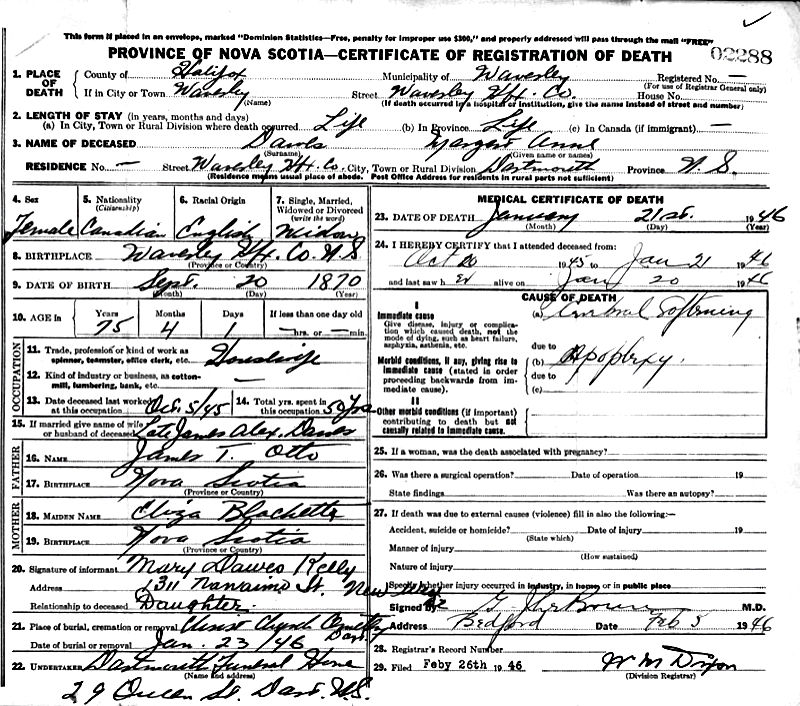 This form if placed in an envelope, marked "Dominion Statistics—Free, penalty for improper use $300," and properly addressed will pass through the mail "FREE"
PROVINCE OF NOVA SCOTIA—CERTIFICATE OF REGISTRATION OF DEATH
02288
1. PLACE OF DEATH
County of Halifax Municipality of Waverley Registered No. —
(For use of Registrar General only)
If in City or Town Waverley Street Waverley Hfx. Co. House No.
(Name) (If death occurred in a hospital or institution, give the name instead of street and number)
2. LENGTH OF STAY (in years, months and days)
(a) In City, Town or Rural Division where death occurred Life (b) In Province Life (c) In Canada (if immigrant) —
3. NAME OF DECEASED Daws Margert Anne
(Surname) (Given name or names)
RESIDENCE No. — Street Waverley Hfx Co. City, Town or Rural Division Dartmouth Province N.S.
(Residence means usual place of abode. Post Office Address for residents in rural parts not sufficient)
4. Sex
Female
5. Nationality
(Citizenship)
Canadian
6. Racial Origin
English
7. Single, Married, Widowed or Divorced
(write the word)
Widow
8. BIRTHPLACE Waverley Hfx. Co. N.S
(Province or Country)
9. DATE OF BIRTH Sept. 20 1870
(Month) (Day) (Year)
10. AGE IN
Years Months Days If less than one day old
75 4 1 —hrs. or —min.
OCCUPATION
11. Trade, profession or kind of work as spinner, teamster, office clerk, etc. Housewife
12. Kind of industry or business, as cotton-mill, lumbering, bank, etc. —
13. Date deceased last worked at this occupation Oct. 5/45
14. Total yrs. spent in this occupation 50 yrs
15. If married give name of wife or husband of deceased Late James Alex. Daws
FATHER
16. NAME James T. Otto
17. BIRTHPLACE Nova Scotia
(Province or Country)
MOTHER
18. MAIDEN NAME Eliza Blackette
19. BIRTHPLACE Nova Scotia
(Province or Country)
20. Signature of informant Mary Dawes Kelly
Address 1311 Nanaimo St. New
Relationship to deceased Daughter.
21. Place of burial, cremation or removal Christ Church Cemetery Dart.
Date of burial or removal Jan. 23/46
22. UNDERTAKER Dartmouth Funeral Home
(Name and address)
29 Queen St. Dart. N.S.
MEDICAL CERTIFICATE OF DEATH
23. DATE OF DEATH January 21st. 1946
(Month) (Day) (Year)
24. I HEREBY CERTIFY that I attended deceased from:
Oct 20 1945 to Jan 21 1946
and last saw her alive on Jan 20 1946
CAUSE OF DEATH
I
Immediate cause
Give disease, injury or complication which caused death, not the mode of dying, such as heart failure, asphyxia, asthenia, etc.
(a) Cerebral Softening
due to
Morbid conditions, if any, giving rise to immediate cause (stated in order proceeding backwards from immediate cause).
(b) Apoplexy.
due to
(c)
II
Other morbid conditions (if important) contributing to death but not causally related to immediate cause.
25. If a woman, was the death associated with pregnancy?
26. Was there a surgical operation? Date of operation 19
State findings Was there an autopsy?
27. If death was due to external causes (violence) fill in also the following:—
Accident, suicide or homicide? Date of injury 19
(State which)
Manner of injury
(How sustained)
Nature of injury
Specify whether injury occurred in industry, in home, or in public place
Signed by G M.D.
Address Bedford Date Feb 5 1946
28. Registrar's Record Number
29. Filed Feby 26th 1946 W M Dixon
(Division Registrar)